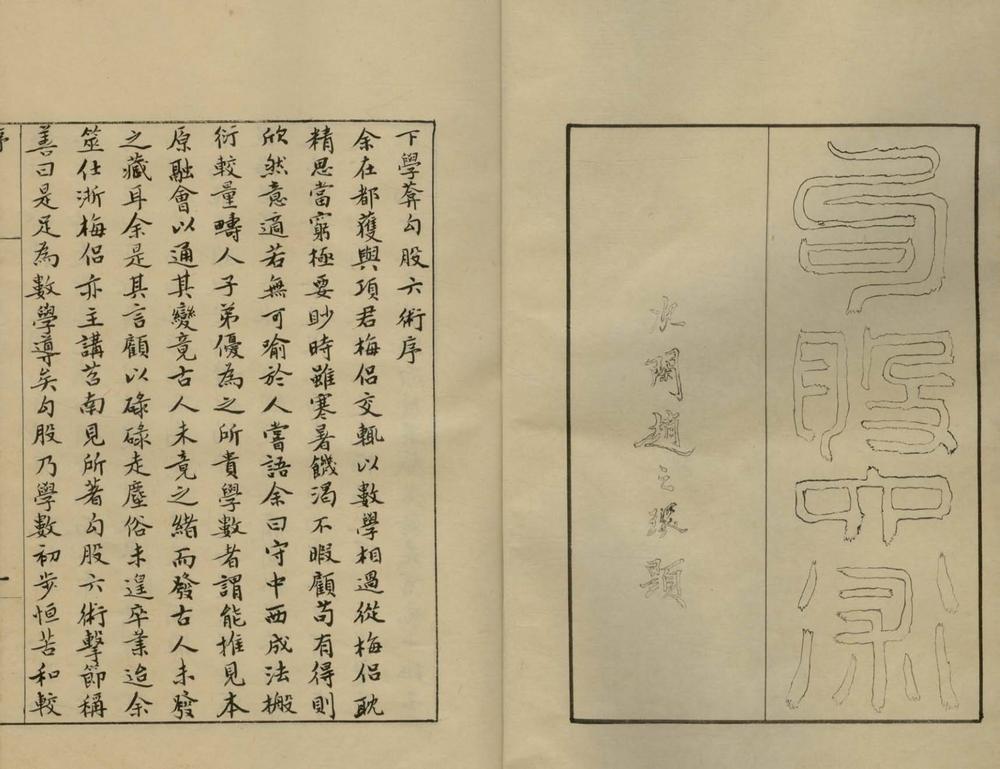 句股六術
次閒趙之琛題
下學葊勾股六術序
余在都獲與項君梅侶交輒以數學相過從梅侶耽
精思當窮極要眇時雖寒暑饑渴不暇顧苟有得則
欣然意適若無可喻於人嘗語余曰守中西成法搬
衍較量疇人子弟優為之所貴學數者謂能推見本
原融會以通其變竟古人未竟之緒而發古人未發
之藏耳余是其言顧以碌碌走塵俗未遑卒業迨余
筮仕浙梅侶亦主講苕南見所著勾股六術擊節稱
善曰是足為數學導矣勾股乃學數初步恒苦和較
序
一